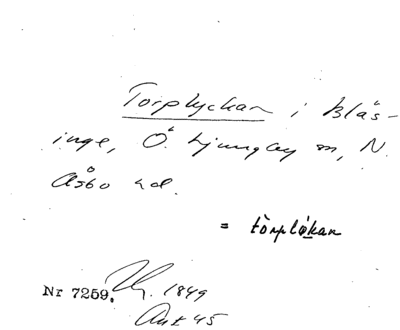 Torplyckan i Blås-
inge, Ö. Ljungby sn, N.
Åsbo hd.
= tòrplỳkan
Nr 7259. 1849
Ant 45